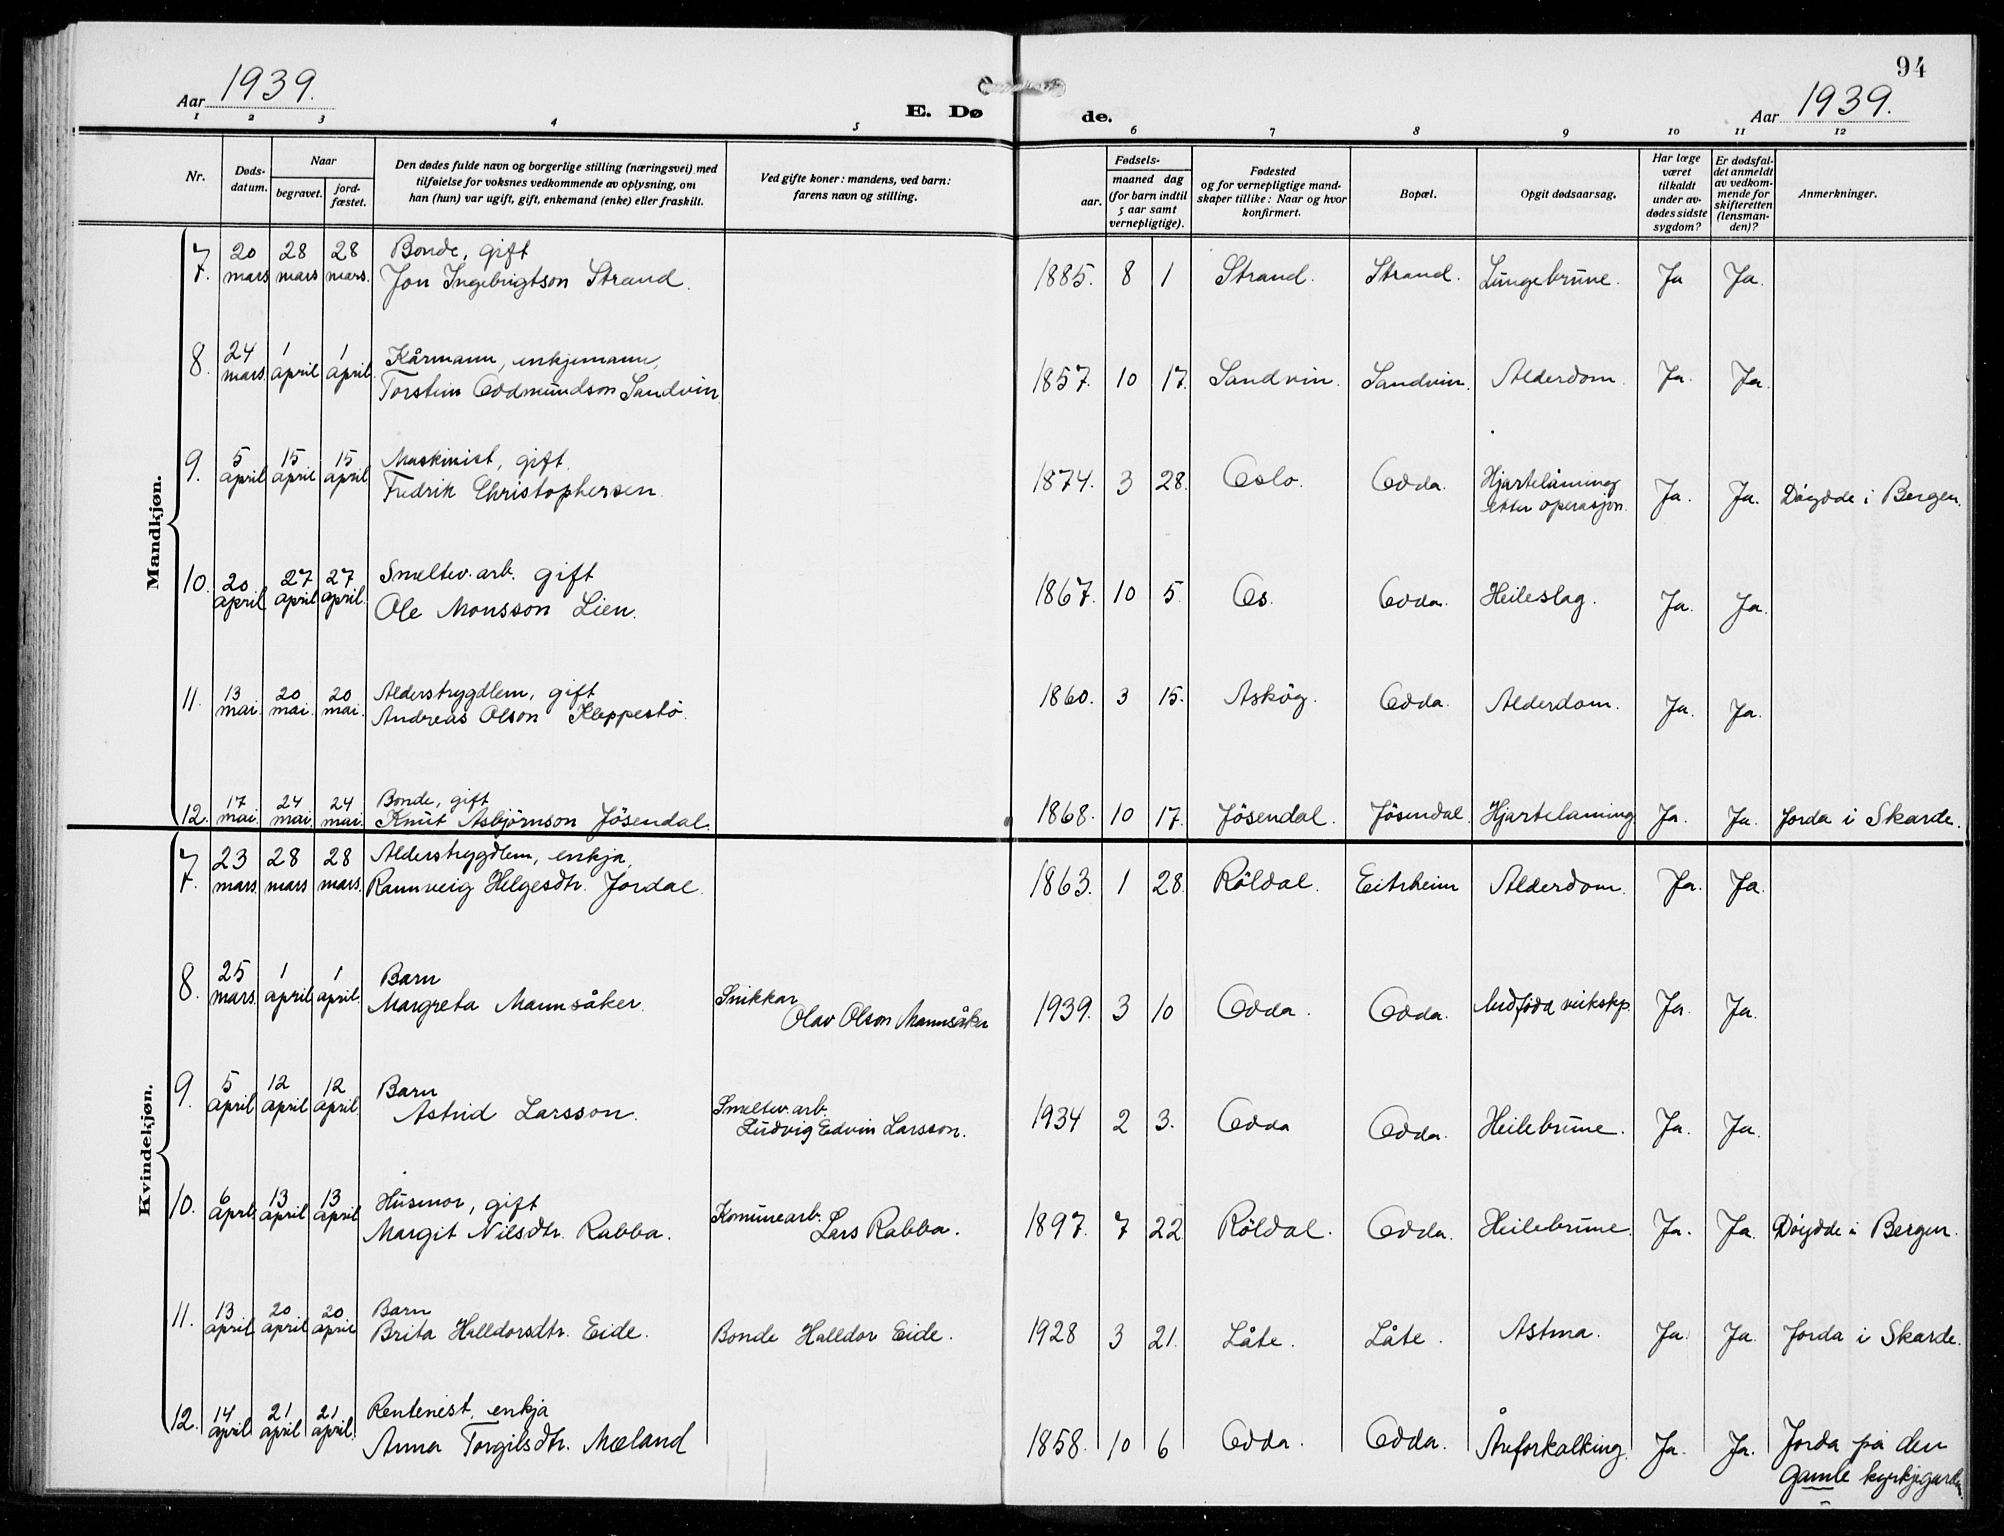 94
Aar 1939.
E. Dø de.
Aar 1939.
1 2 3 4 5 6 7 8 9 10 11 12
Nr.
Døds-
datum.
Naar
begravet.
jord-
fæstet.
Den dødes fulde navn og borgerlige stilling (næringsvei) med
tilføielse for voksnes vedkommende av oplysning, om
han (hun) var ugift, gift, enkemand (enke) eller fraskilt.
Ved gifte koner: mandens, ved barn:
farens navn og stilling.
Fødsels-
aar.
maaned dag
(for barn indtil
5 aar samt
vernepligtige).
Fødested
og for vernepligtige mand-
skaper tillike: Naar og hvor
konfirmert.
Bopæl.
Opgit dødsaarsag.
Har læge
været
tilkaldt
under av-
dødes sidste
sygdom?
Er dødsfal-
det anmeldt
av vedkom-
mende for
skifteretten
(lensman-
den)?
Anmerkninger.
Mandkjøn.
7. 20 mars 28 mars 28 mars. Bonde, gift
Jon Ingebrigtson Strand. 1885. 8 1 Strand. Strand. Lungebrune. Ja Ja.
8. 24 mars. 1 april 1 april. Kårmann, enkjemann,
Torstein Oddmundson Sandvin 1857. 10 17. Sandvin. Sandvin. Alderdom. Ja. Ja.
9. 5 april 15 april 15 april Maskinist, gift.
Fredrik Christophersen. 1874. 3 28. Oslo. Odda. Hjartelaming
etter operasjon. Ja. Ja. Døydde i Bergen.
10. 20 april 27 april 27 april. Smeltev. arb. gift
Ole Monsson Lien. 1867. 10 5. Os. Odda. Heileslag. Ja. Ja.
11. 13 mai. 20 mai. 20 mai. Alderstrygdlem, gift
Andreas Olson Kleppestø. 1860. 3 15. Askøy. Odda. Alderdom. Ja. Ja.
12. 17 mai. 24 mai. 24 mai. Bonde, gift
Knut Asbjørnson Jøsendal. 1868. 10 17. Jøsendal. Jøsendal. Hjartelaming Ja. Ja. Jorda i Skarde.
Kvindekjøn.
7. 23 mars. 28 mars 28 mars. Alderstrygdlem, enkja,
Rannveig Helgesdtr. Jordal. 1863. 1 28. Røldal. Eitrheim Alderdom. Ja. Ja.
8. 25 mars. 1 april 1 april. Barn
Margreta Mannsåker. Snikkar
Olav Olson Mannsåker 1939. 3 10 Odda. Odda. Medfødd veikskp. Ja. Ja.
9. 5 april 12 april 12 april. Barn
Astrid Larsson. Smeltev. arb.
Ludvig Edvin Larsson. 1934 2 3. Odda Odda. Heilebrune. Ja. Ja.
10. 6 april 13 april 13 april Husmor, gift
Margit Nilsdtr. Rabba. Komunearb.
Lars Rabba. 1897. 7 22 Røldal. Odda. Heilebrune. Ja. Ja. Døydde i Bergen.
11. 13 april 20 april 20 april Barn
Brita Halldorsdtr. Eide. Bonde Halldor Eide. 1928 3 21. Låte. Låte. Astma. Ja. Ja. Jorda i Skarde.
12. 14 april 21 april 21 april. Rentenist, enkja
Anna Torgilsdtr. Mæland 1858. 10 6 Odda. Odda. Åreforkalking. Ja. Ja. Jorda på den
gamle kyrkjegarden.